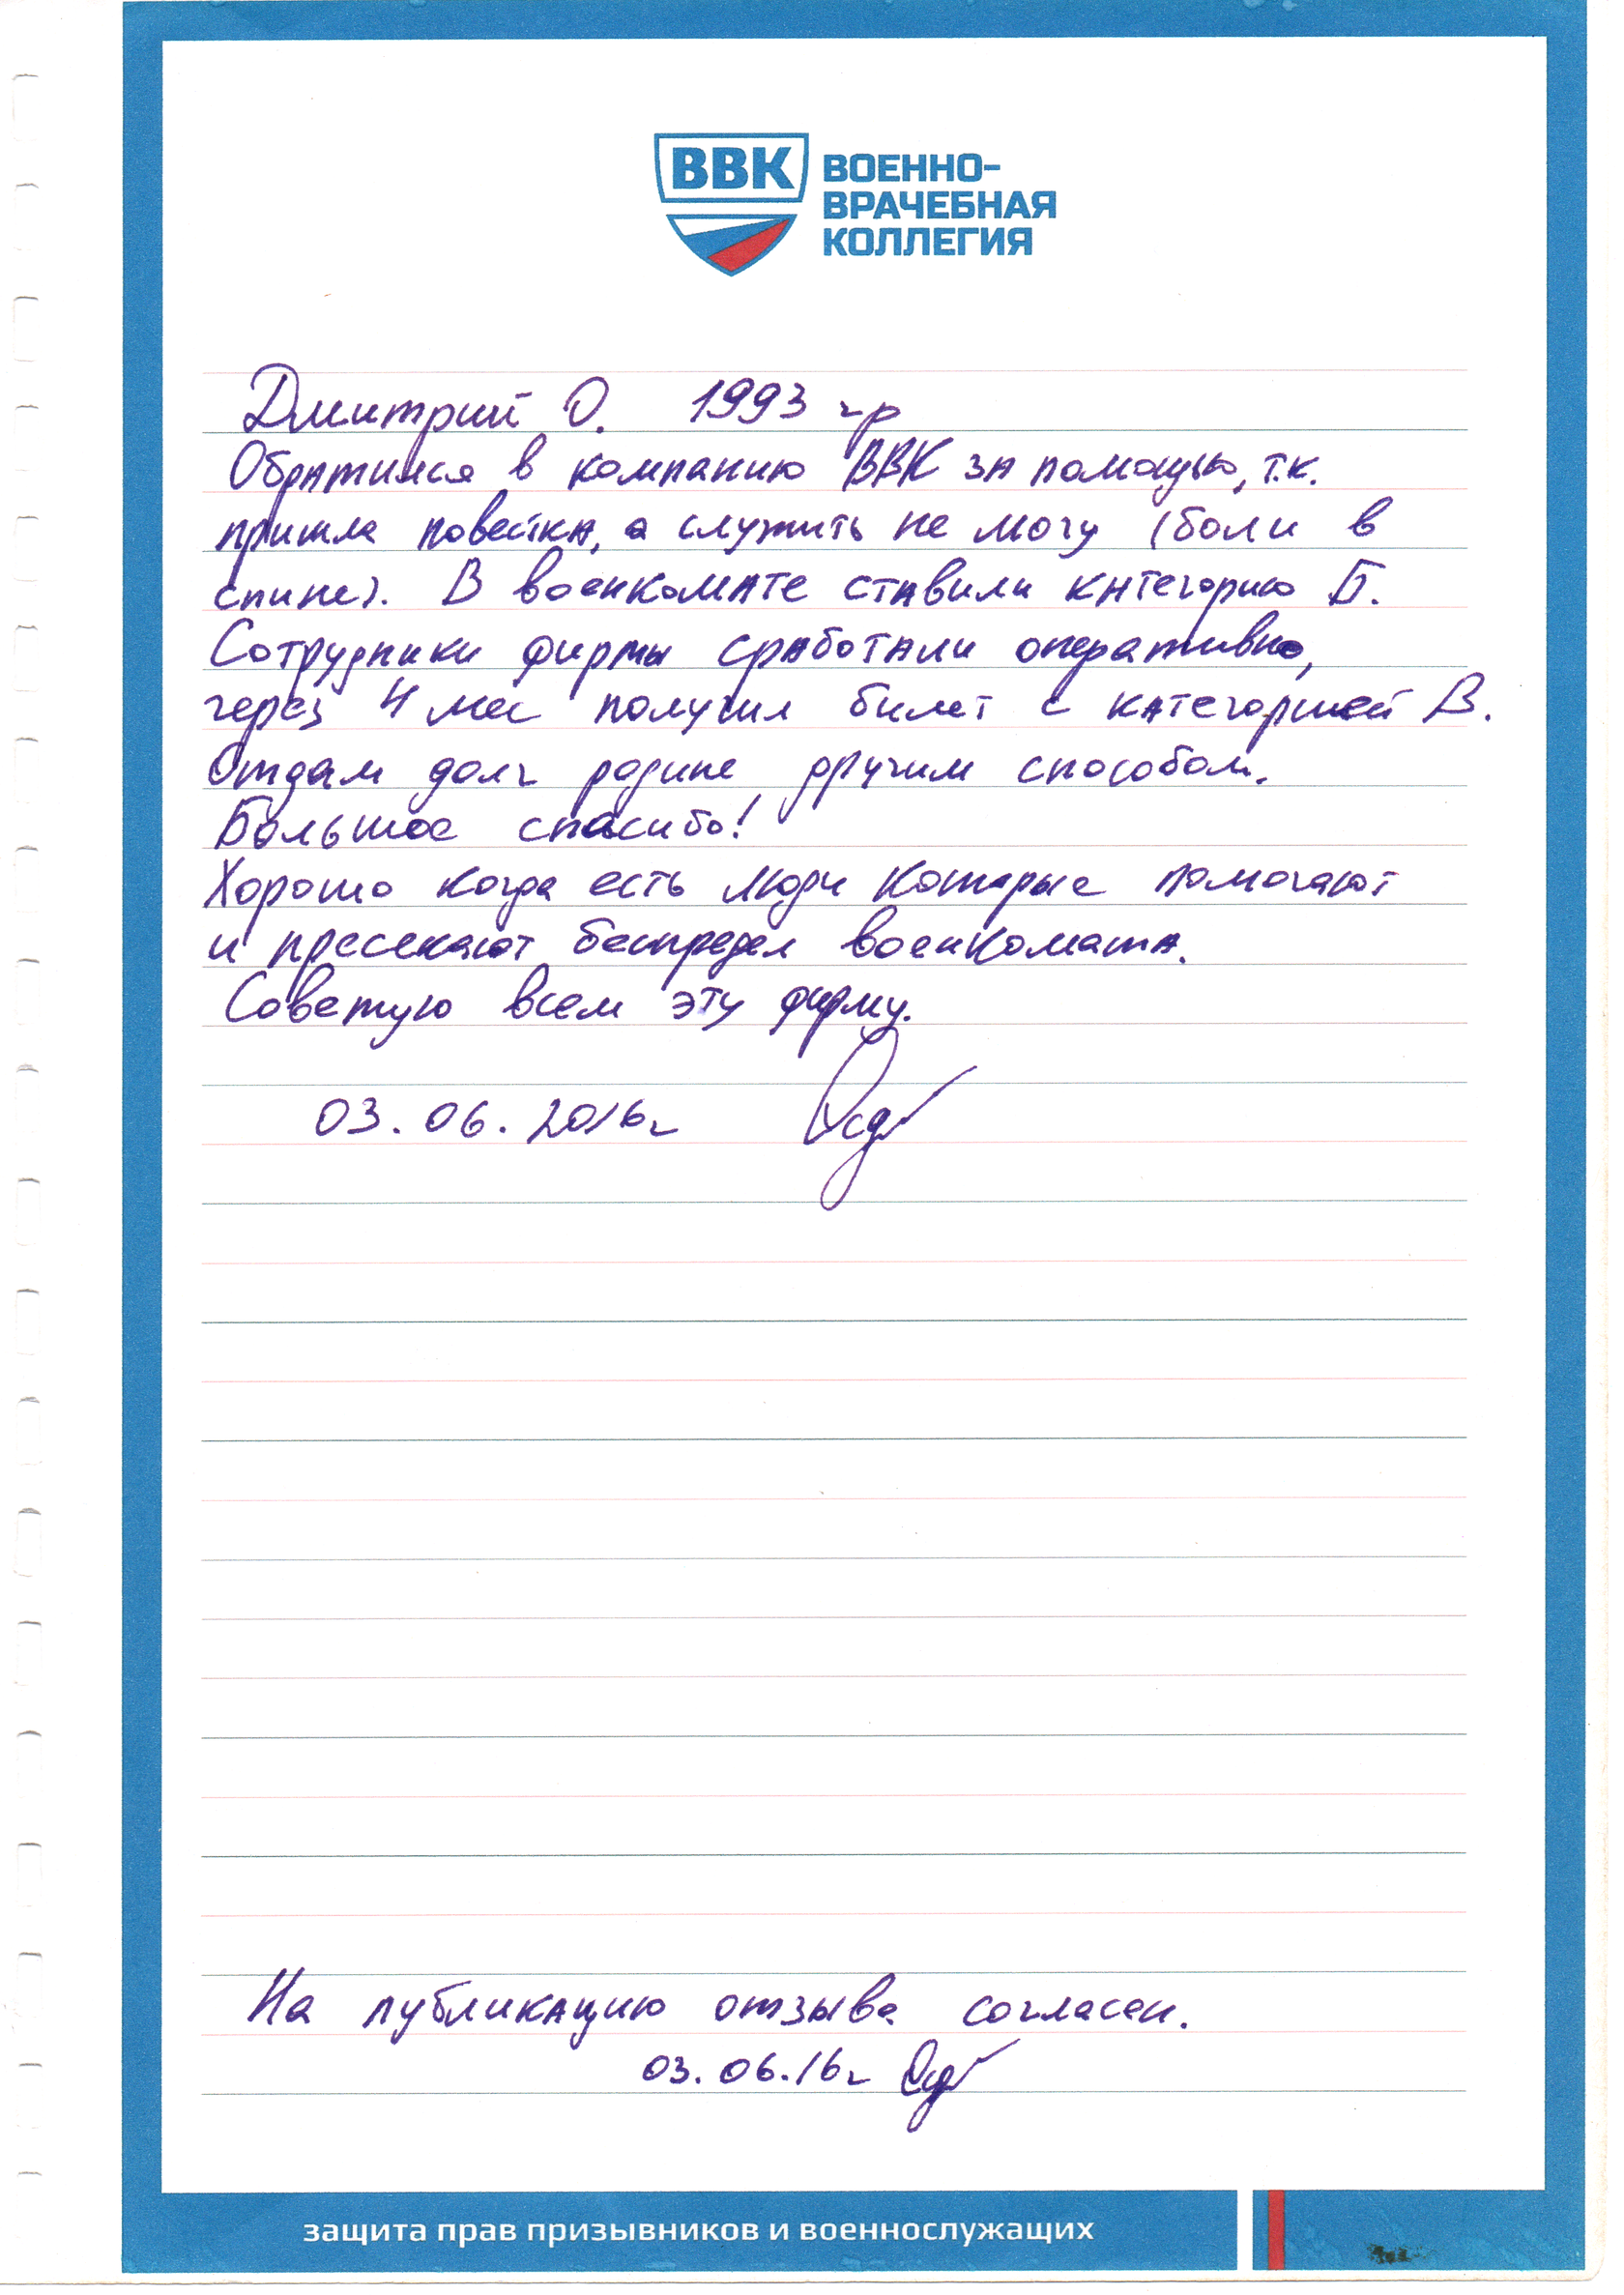 ВВК
ВОЕННО-
ВРАЧЕБНАЯ
КОЛЛЕГИЯ
Дмитрий О. 1993 гр
Обратился в компанию ВВК за помощью, т.к.
пришла повестка, а служить не могу (боли в
спине). В военкомате ставили категорию Б.
Сотрудники фирмы сработали оперативно,
через 4 мес получил билет с категорией В.
Отдам долг родине другим способом.
Большое спасибо!
Хорошо когда есть люди которые помогают
и пресекают беспредел военкомата.
Советую всем эту фирму.
03.06.2016г
На публикацию отзыва согласен.
03.06.16г
защита прав призывников и военнослужащих